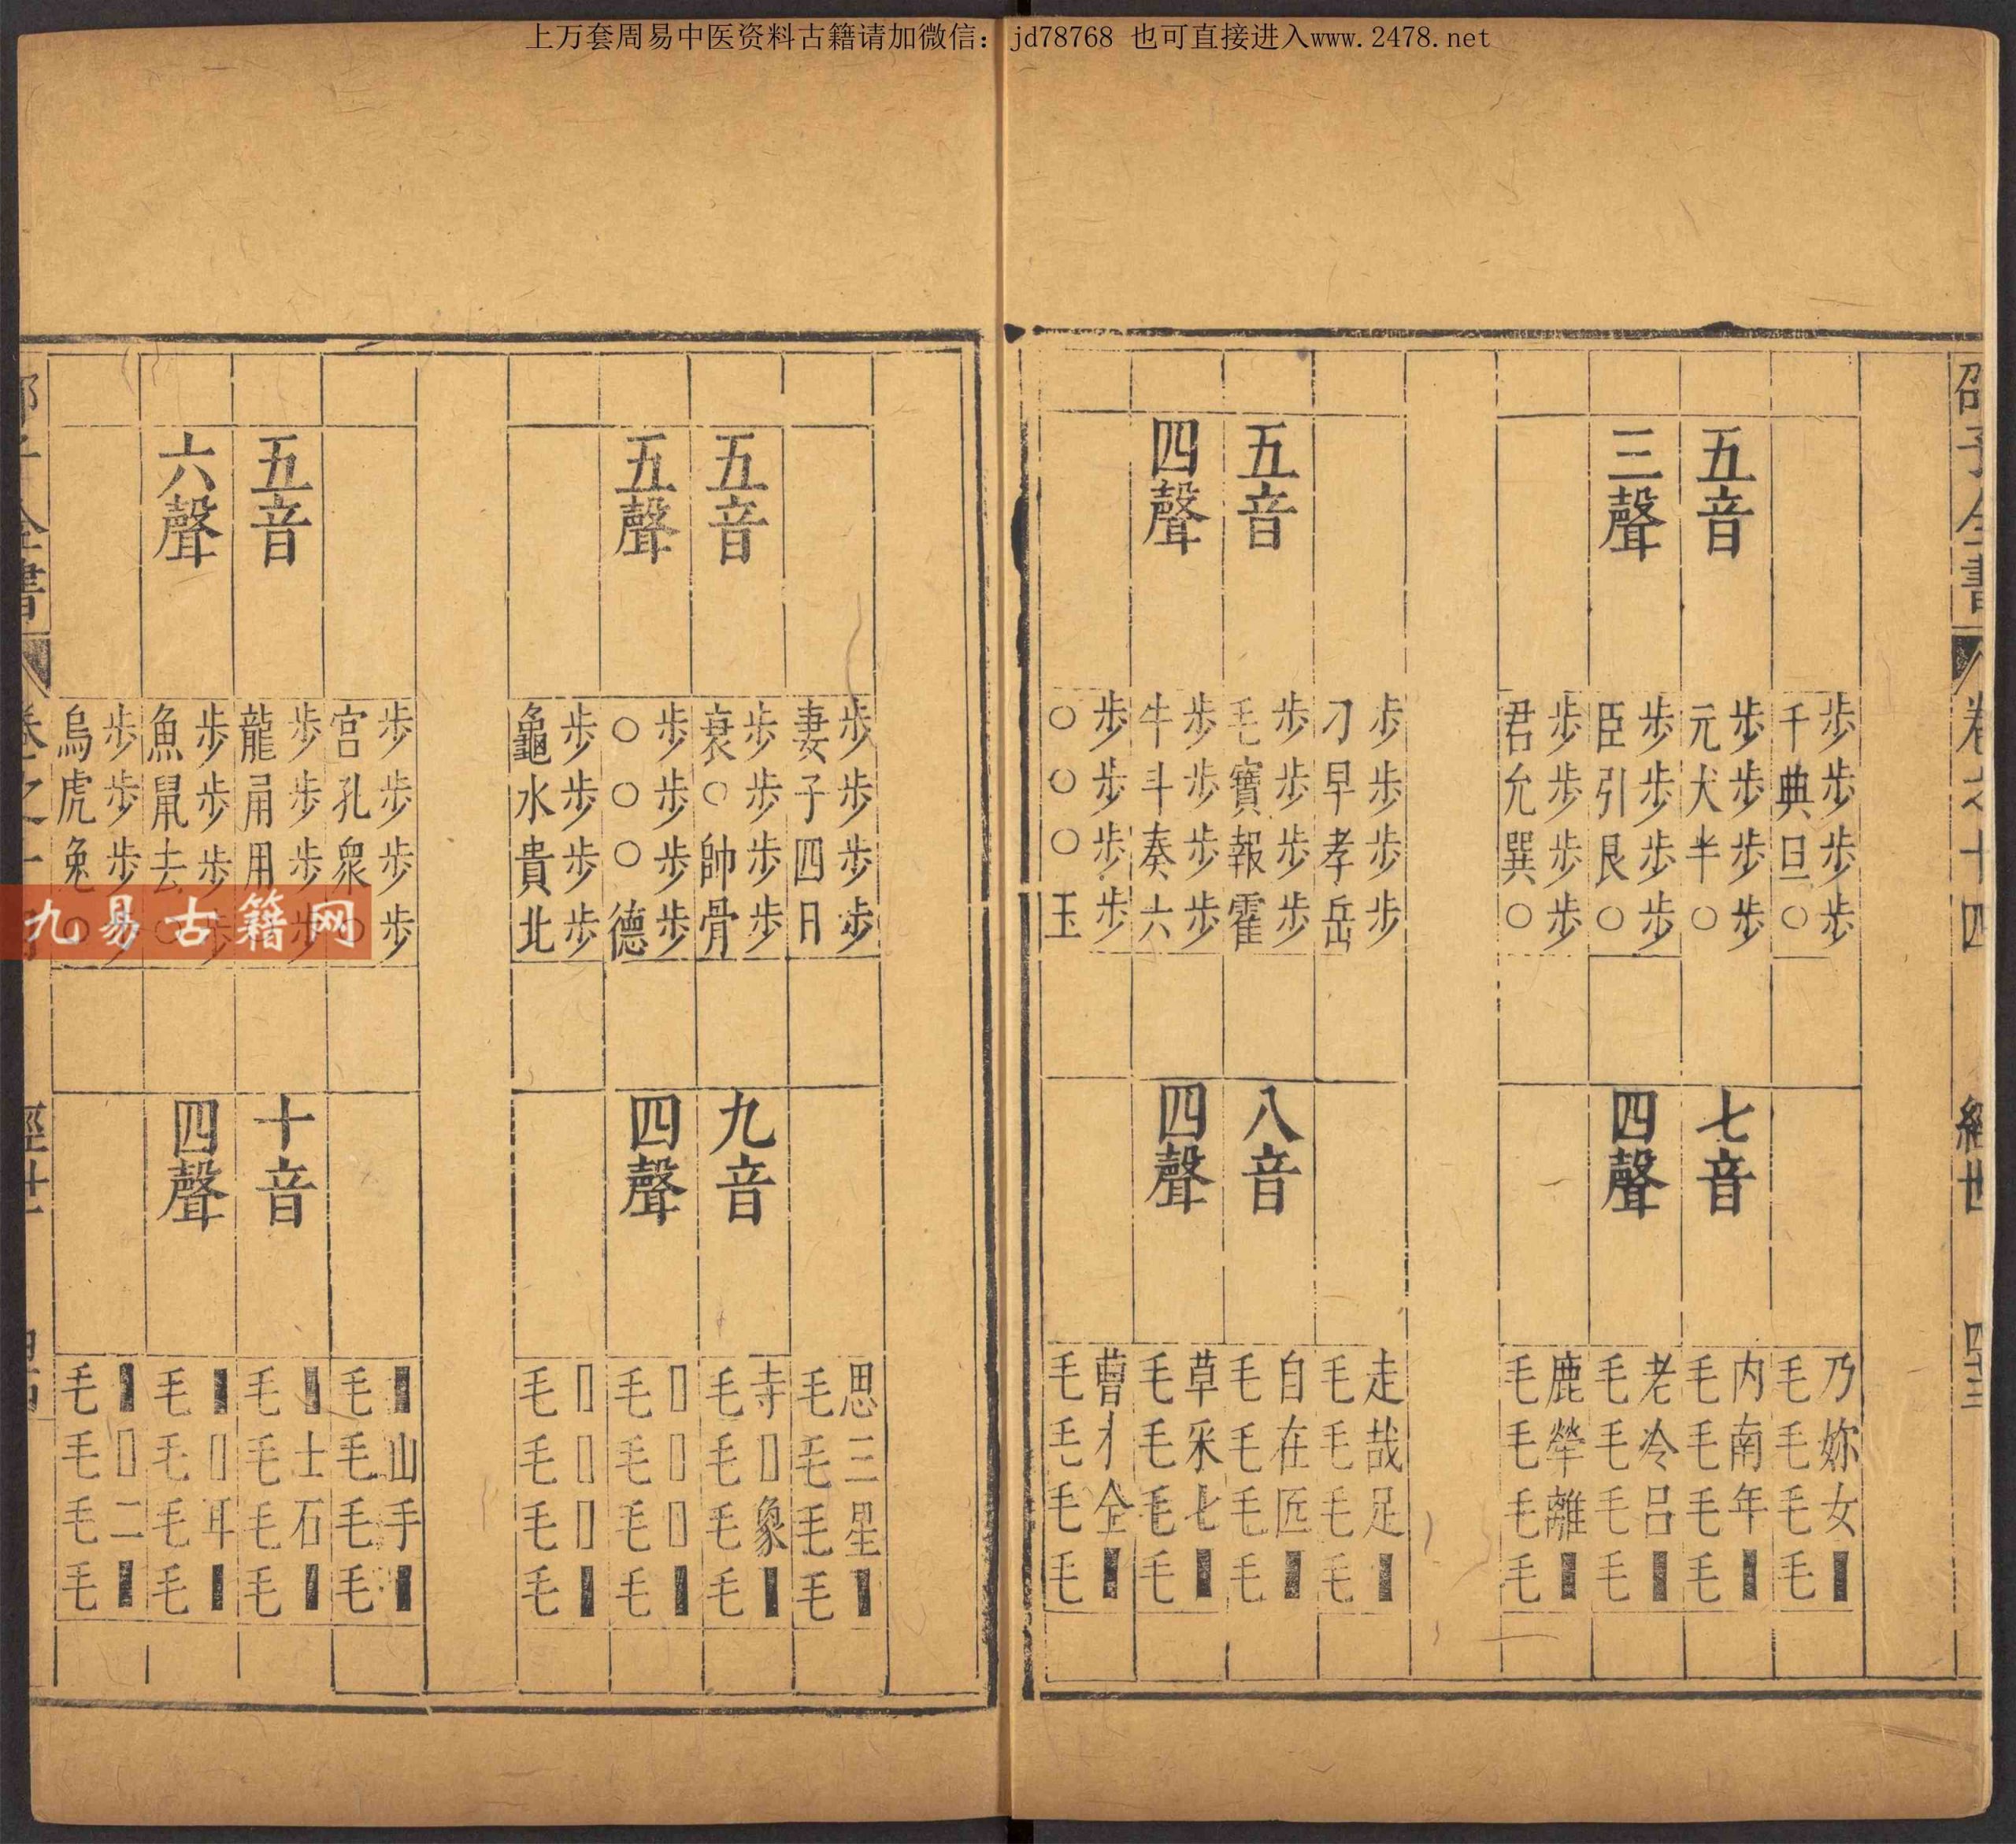 上万套周易中医资料古籍请加微信：jd78768 也可直接进入www.2478.net
邵子全書
卷之十四
經世
五音
三聲
步千步元步臣步君
步典步犬步引步允
步旦步半步艮步巽
步○步○步○步○
七音
四聲
乃毛内毛老毛鹿毛
妳毛南毛冷毛犖毛
女毛年毛呂毛離毛
▮毛▮毛▮毛▮毛
五音
四聲
步刀步毛步牛步○
步早步寶步斗步○
步孝步報步奏步○
步岳步霍步六步玉
八音
四聲
走毛自毛草毛曹毛
哉毛在毛采毛才毛
足毛匠毛七毛全毛
▮毛▮毛▮毛▮毛
五音
五聲
步妻步衰步○步龜
步子步○步○步水
步四步帥步○步貴
步日步骨步德步北
九音
四聲
思毛寺毛▯毛▯毛
三毛▯毛▯毛▯毛
星毛象毛▯毛▯毛
▮毛▮毛▮毛▮毛
五音
六聲
步宮步龍步魚步烏
步孔步甬步鼠步虎
步衆步用步去步兔
步○步○步○步○
十音
四聲
▮毛▮毛▮毛▮毛
山毛士毛▯毛▯毛
手毛石毛耳毛二毛
▮毛▮毛▮毛▮毛
九易古籍网